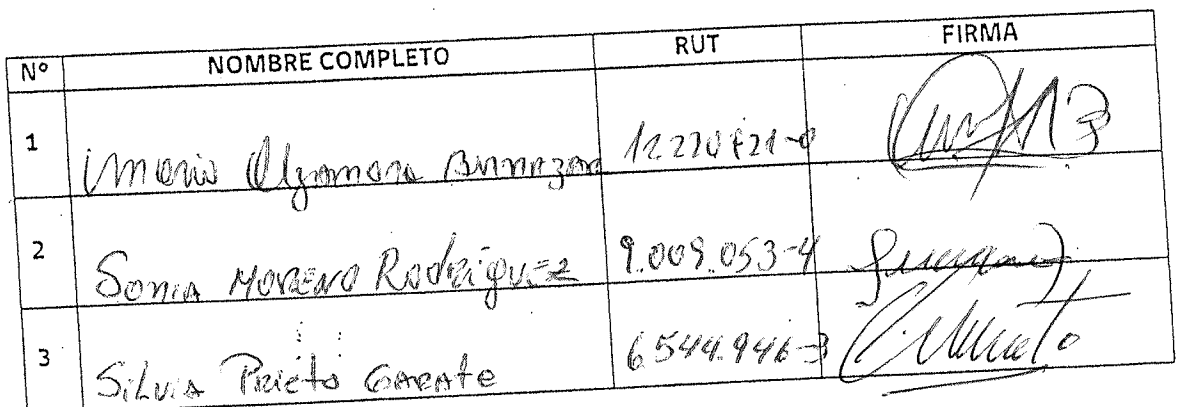 Nº NOMBRE COMPLETO RUT FIRMA
1 Maria Olgamora
2 Sonia Moreno Rodriguez 9.009.053-4
3 Silvia Prieto Garate 6.544.946-3